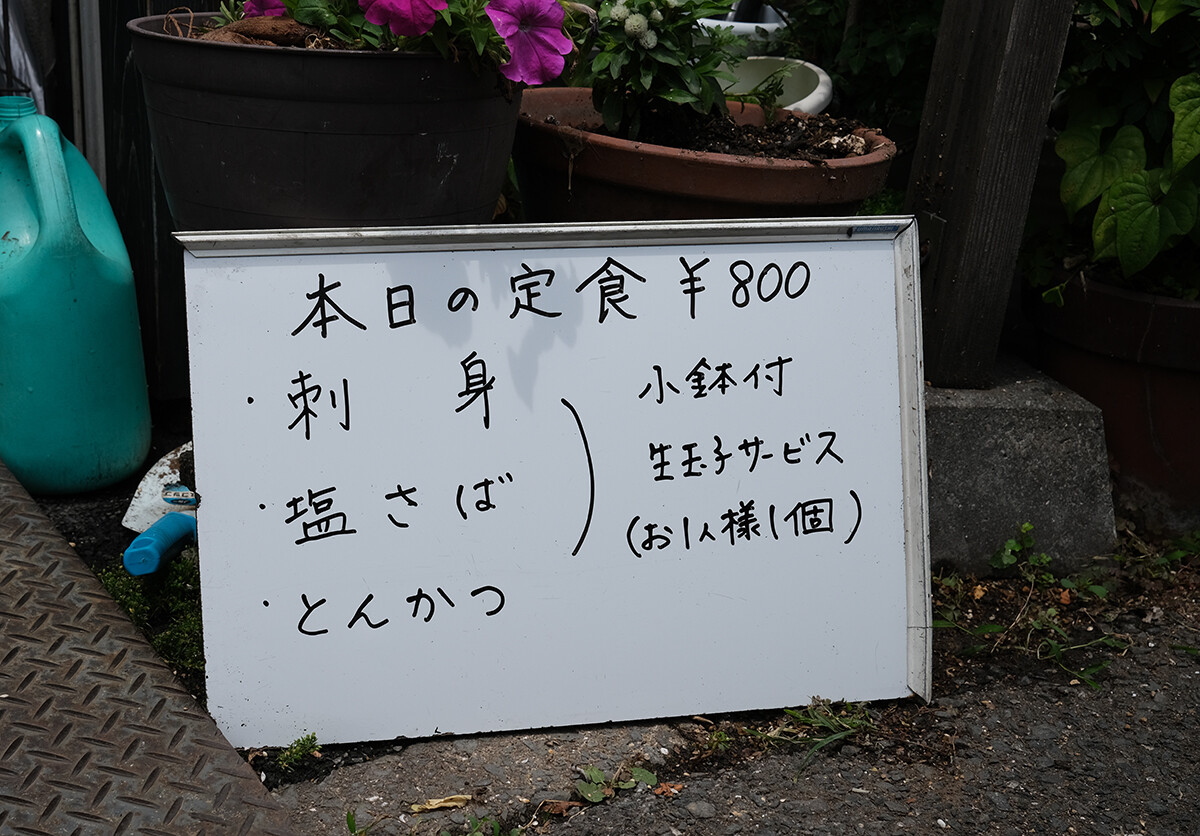 本日の定食 ¥800
・刺身
・塩さば
・とんかつ
小鉢付
生玉子サービス
(お1人様1個)